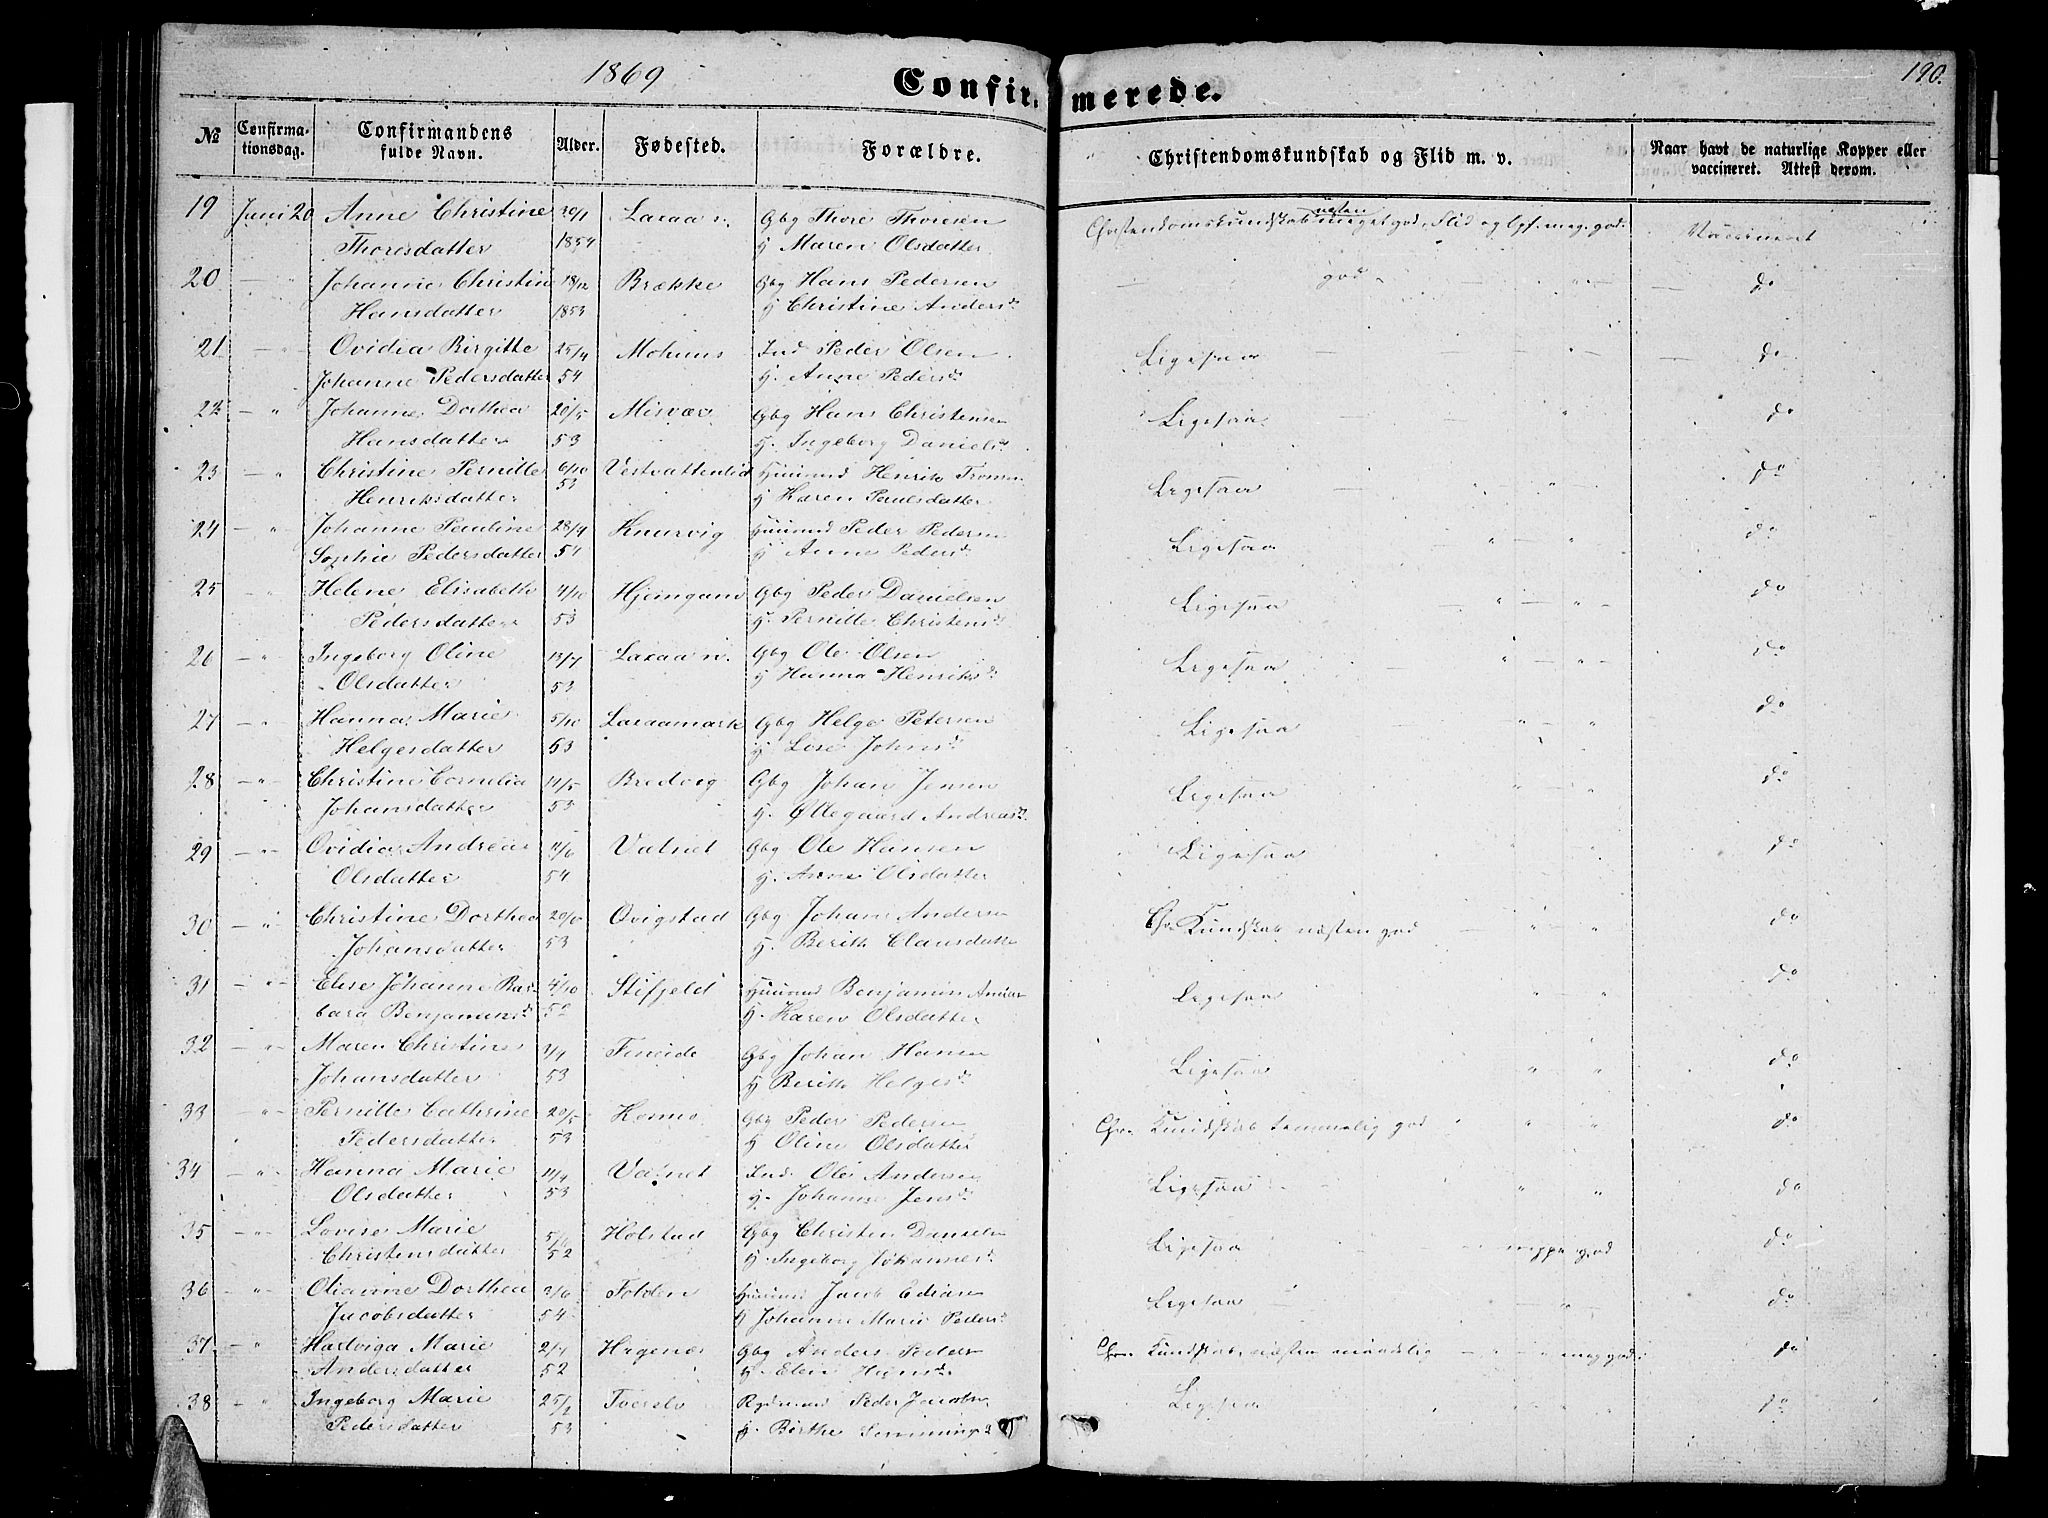 1869
Confirmerede.
190.
No
Confirma-
tionsdag.
Confirmandens
fulde Navn.
Alder.
Fødested.
Forældre.
Christendomskundskab og Flid m. v.
Naar havt de naturlige Kopper eller
vaccineret. Attest derom.
19 Juni 20 Anne Christine 20/1 Gbg Thore Thoresen Christendomskundskab næsten meget god, Flid og Opf. meg. god. Vaccineret
Thoresdatter 1854 H Maren Olsdatter
20 — " Johanne Christine 18/12 Brække Gbg Hans Pedersen god — do
Hansdatter 1853 H Christine Andersd.
21 — " Ovidia Birgitte 25/4 Mohuus Ind Peder Olsen Ligesaa — do
Johanne Pedersdatter 54 H. Anne Pedersd.
22 — " Johanne Dorthea 20/5 Misvær Gbg Hans Christensen Ligesaa do
Hansdatter 53 H. Ingeborg Danielsd.
23 — " Christine Pernille 6/10 Vestvattenlid Huusmd Henrik Ligesaa do
Henriksdatter 53 H Karen Paulsdatter
24 — " Johanne Pauline 28/9 Knurvig Huusmd Peder Pedersen Ligesaa do
Sophie Pedersdatter 54 H Anne Pedersd.
25 " Helene Elisabeth 4/10 Hjeingam Gbg Peder Danielsen Ligesaa do
Pedersdatter 53 H. Pernille Christensd.
26 — " Ingeborg Oline 13/7 Gbg Ole Olsen Ligesaa do
Olsdatter 53 H Hanna Henriksd.
27 — " Hanna Marie 5/10 Gbg Helge Petersen Ligesaa do
Helgesdatter 53 H. Lise Johnsd.
28 — " Christine Cornelia 14/5 Bredvig Gbg Johan Jensen Ligesaa do
Johansdatter 53 H. Øllegaard Andreasd.
29 — " Ovidia Andrea Valnet Gbg Ole Hansen Ligesaa do
Olsdatter 54 H. Anne Olsdatter
30 — " Christine Dorthea Qvigstad Gbg Johan Andersen Chr. Kundskab næsten god do
Johansdatter 53 H. Berith Clausdatter
31 — " Elise Johanne Bar- 4/10 Stifjeld Huusmd Benjamin Ligesaa do
bara Benjaminsd. H. Karen Olsdatter
32 — " Maren Christine Fineide Gbg Johan Hansen Ligesaa do
Johansdatter 53 H Berith Helgesd.
33 — " Pernille Cathrine 20/5 Kosmo Gbg Peder Pedersen Chr. Kundskab temmelig god do
Pedersdatter 53 H Oline Olsdatter
34 — " Hanna Marie 11/4 Valnet Ind. Ole Andersen Ligesaa do
Olsdatter 53 H. Johanne Jensd.
35 — " Lovise Marie Holstad Gbg Christen Danielsen Ligesaa god do
Christensdatter 52 H. Ingeborg Johannesd.
36 — " Olianne Dorthea 3/6 Folden Huusmd Jacob Ligesaa do
Jacobsdatter 54 H Johanne Marie Pedersd.
37 — " Hartviga Marie 2/4 Hagenæs Gbg Anders Peders. Chr. Kundskab næsten maadelig meg god do
Andersdatter 52 H. Elen Hansd.
38 — " Ingeborg Marie Tverelv Rydmand Peder Jacobsen Ligesaa do
Pedersdatter 53 H. Birthe